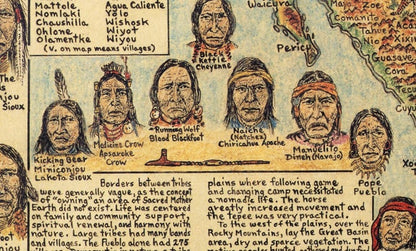 Mattole
Nomlaki
Chaushilla
Ohlone
Olamentke
Agua Caliente
Yélo
Wishosk
Wiyot
Wiyou
(V. on map means villages)
Black
Kettle
Cheyenne
Waicura
Pericu
Comanito
Tahue
Guasave
Cora
Totora
Sioux
Kicking Bear
Miniconjou
Lakota Sioux
Medicine Crow
Apsaroke
Crow
Running Wolf
Blood Blackfoot
Naiche
(Natches)
Chiricahua Apache
Manuelito
Dineh (Navajo)
Pope
Pueblo
Borders between tribes
were generally vague, as the concept
of "owning" an area of Sacred Mother
Earth did not exist. Life was centered
on family and community support,
spiritual renewal, and harmony with
nature. Large tribes had many bands
and villages. The Pueblo alone had 275
plains where following game
and changing camp necessitated
a nomadic life. The horse
greatly increased movement and
the tepee was very practical.
To the west of the plains, over the
Rocky Mountains, lay the Great Basin
area, dry and sparce vegetation. The